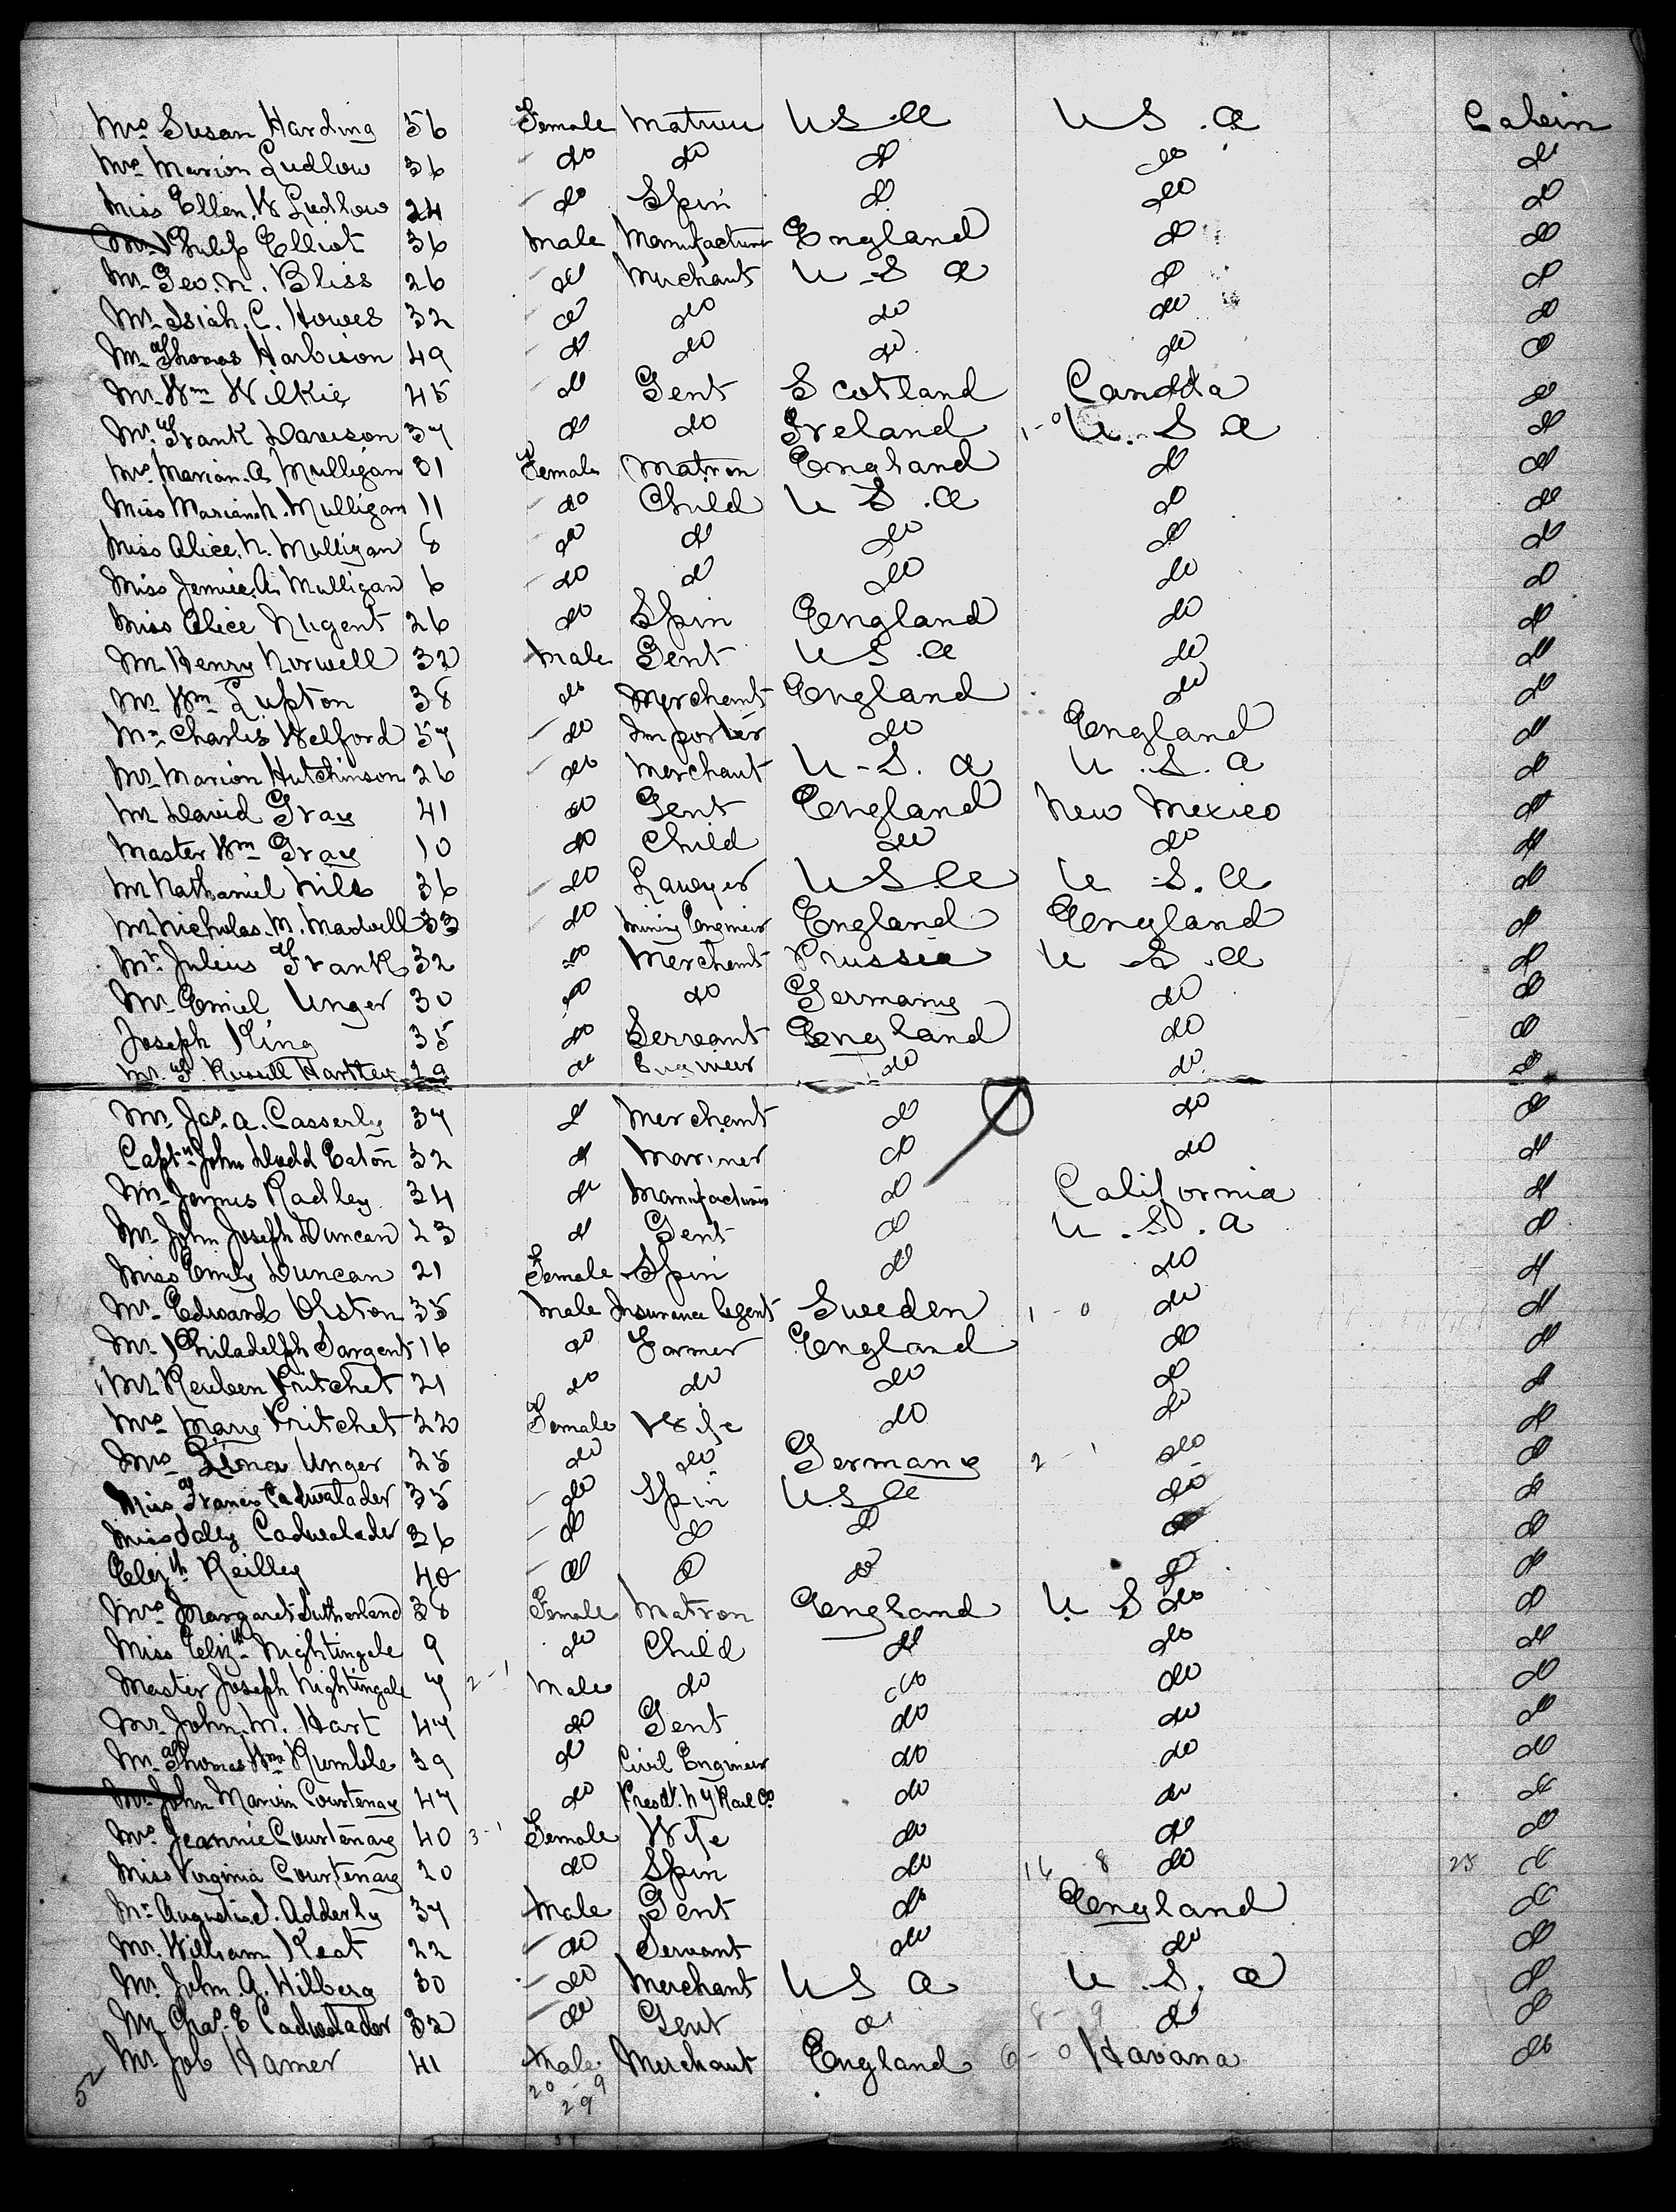 Mrs Susan Harding 56 Female Matron U S.A U S.A Cabin
Mrs Marion Ludlow 36 do do do do do
Miss Ellen. W Ludlow 24 do Spin do do do
Mr Philip Elliot 36 Male Manufacturer England do do
Mr Geo. N. Bliss 26 do Merchant U-S A do do
Mr Isiah. C. Howes 32 do do do do do
Mr Thomas Harbison 49 do do do do do
Mr Wm Wilkie 45 do Gent Scotland Canada do
Mr Frank Davison 37 do do Ireland 1-0 U.S.A do
Mrs Marian. A Mulligan 31 Female Matron England do do
Miss Marian. N. Mulligan 11 do Child U S.A do do
Miss Alice. N. Mulligan 8 do do do do do
Miss Jennie. A. Mulligan 6 do do do do do
Miss Alice Nugent 26 do Spin England do do
Mr Henry Norwell 32 Male Gent U S.A do do
Mr Wm Lupton 38 do Merchant England do do
Mr Charles Welford 57 do Importer do England do
Mr Marion Hutchinson 26 do Merchant U-S. A U.S.A do
Mr David Gray 41 do Gent England New Mexico do
Master Wm Gray 10 do Child do do do
Mr Nathaniel Niles 36 do Lawyer U S.A U S.A do
Mr Nicholas. M. Maxwell 33 do Mining Engineer England England do
Mr Julius Frank 32 do Merchant Prussia U S.A do
Mr Emiel Unger 30 do do Germany do do
Joseph King 35 do Servant England do do
Mr. F. Russell Hartley 29 do Engineer do do do
Mr. Jas. A. Casserly 37 do Merchant do do do
Captn John Dodd Eaton 32 do Mariner do do do
Mr James Radley 34 do Manufacturer do California do
Mr John Joseph Duncan 23 do Gent do U.S.A do
Miss Emily Duncan 21 Female Spin do do do
Mr Edward Olston 35 Male Insurance Agent Sweden 1-0 do do
Mr Philadelph Sargent 16 do Farmer England do do
Mr Reuben Pritchet 21 do do do do do
Mrs Mary Pritchet 22 Female Wife do do do
Mrs Lina Unger 25 do do Germany 2-1 do do
Miss Frances Cadwalader 35 do Spin U.S.A do do
Miss Sally Cadwalader 36 do do do do do
Elizth Reilley 40 do do do do do
Mrs Margaret Sutherland 38 Female Matron England U S do do
Miss Elizth Nightingale 9 do Child do do do
Master Joseph Nightingale 7 2-1 Male do do do do
Mr. John. M. Hart 47 do Gent do do do
Mr Thomas Wm Rumble 39 do Civil Engineer do do do
Mr. John Marvin Courtenay 47 do Presdt. N Y Rail Co do do do
Mrs Jeannie Courtenay 40 3-1 Female Wife do do do
Miss Virginia Courtenay 20 do Spin do 16-8 do 25 do
Mr Augustus. J. Adderly 37 Male Gent do England do
Mr. William Keat 22 do Servant do do do
Mr. John. G. Hilberg 30 do Merchant U S A U.S.A do
Mr Chas. E Cadwalader 32 do Gent do 8-9 do do
Mr. Job Hamer 41 Male Merchant England 6-0 Havana do
52 20-9
299